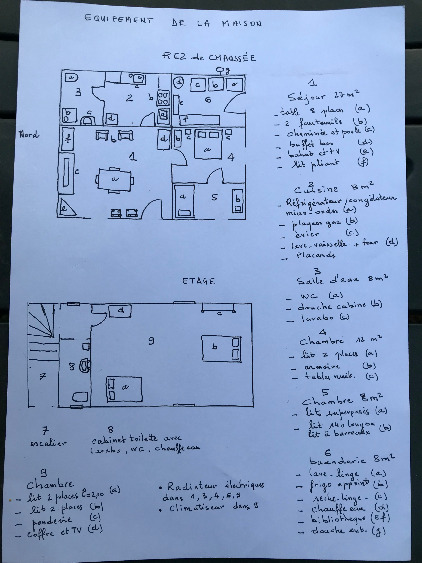 EQUIPEMENT DE LA MAISON
REZ de CHAUSSÉE
Nord
1
Séjour 27 m²
- table 8 places (a)
- 2 fauteuils (b)
- cheminée et poele (c)
- buffet bas (d)
- bahut et TV (e)
- lit pliant (f)
2
Cuisine 8 m²
- Réfrigérateur/congélateur
micro-ondes (a)
- plaques gaz (b)
- évier (c)
- lave-vaisselle + four (d)
- Placards
3
Salle d'eau 8 m²
- WC (a)
- douche cabine (b)
- lavabo (c)
4
Chambre 12 m²
- lit 2 places (a)
- armoire (b)
- tables nuit (c)
5
Chambre 8 m²
- lits superposés (a)
- lit 140
lit à barreaux (b)
6
buanderie 8 m²
- lave-linge (a)
- frigo appoint (b)
- sèche-linge (c)
- chauffe eau (d)
- bibliothèque (e f)
- douche ext. (g)
ETAGE
7
escalier
8
cabinet toilette avec
lavabo, WC, chauffe eau
9
Chambre
- lit 2 places (a)
- lit 2 places (b)
- penderie (c)
- coffre et TV (d)
• Radiateur électriques
dans 1, 3, 4, 5,
• Climatiseur dans 9